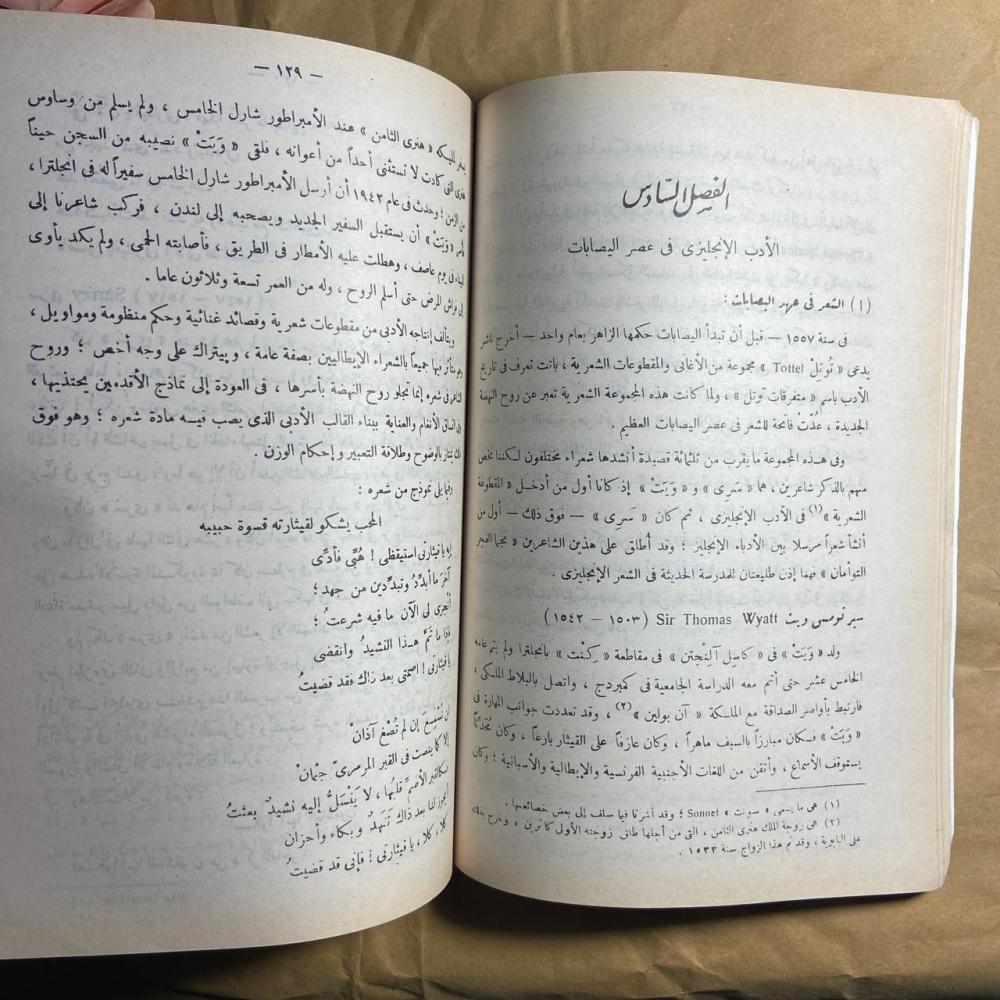 الفصل السادس
الأدب الإنجليزى فى عصر اليصابات
(١) الشعر فى عهد اليصابات :
فى سنة ١٥٥٧ — قبل أن تبدأ اليصابات حكمها الزاهر بعام واحد — أخرج ناشر
يدعى « تُوتِلْ Tottel » مجموعة من الأغانى والمقطوعات الشعرية ، باتت تعرف فى تاريخ
الأدب باسم « متفرقات توتل » ، ولما كانت هذه المجموعة الشعرية تعبر عن روح النهضة
الجديدة ، عُدّت فاتحة للشعر فى عصر اليصابات العظيم .
وفى هذه المجموعة ما يقرب من ثلثمائة قصيدة أنشدها شعراء مختلفون لكننا نخص
منهم بالذكر شاعرين ، هما « سَرِى » و « وَيَتْ » إذ كانا أول من أدخل « المقطوعة
الشعرية »(١) فى الأدب الإنجليزى ، ثم كان « سَرِى » — فوق ذلك — أول من
أنشأ شعراً مرسلا بين الأدباء الإنجليز ؛ وقد أُطلق على هذين الشاعرين « نجما الفجر
التوأمان » فهما إذن طليعتان للمدرسة الحديثة فى الشعر الإنجليزى .
سير تومس ويت Sir Thomas Wyatt (١٥٠٣ — ١٥٤٢)
ولد « وَيَتْ » فى « كاسِل آلِنْجتن » فى مقاطعة « كِنْت » بانجلترا ولم يتم عامه
الخامس عشر حتى أتم معه الدراسة الجامعية فى كمبردج ، واتصل بالبلاط الملكى ،
فارتبط بأواصر الصداقة مع الملكة « آن بولين »(٢) ، وقد تعددت جوانب المهارة فى
« وَيَتْ » فكان مبارزاً بالسيف ماهراً ، وكان عازفا على القيثار بارعاً ، وكان مُحَدِّثاً
يستوقف الأسماع ، وأتقن من اللغات الأجنبية الفرنسية والإيطالية والأسبانية ؛ وكان
(١) هى ما يسمى « سونت » Sonnet ؛ وقد أشرنا فيما سلف إلى بعض خصائصها .
(٢) هى زوجة الملك هنرى الثامن ، التى من أجلها طلق زوجته الأولى كاترين ، وخرج بذلك
على البابوية ، وقد تم هذا الزواج سنة ١٥٣٣ .
— ١٢٩ —
« هنرى الثامن » عند الأمبراطور شارل الخامس ، ولم يسلم من وساوس
التى كادت لا تستثنى أحداً من أعوانه ، فلقى « وَيَتْ » نصيبه من السجن حيناً
من الزمن ؛ وحدث فى عام ١٩٤٢ أن أرسل الأمبراطور شارل الخامس سفيراً له فى انجلترا ،
« وَيَتْ » أن يستقبل السفير الجديد ويصحبه إلى لندن ، فركب شاعرنا إلى
فى يوم عاصف ، وهطلت عليه الأمطار فى الطريق ، فأصابته الحمى ، ولم يكد يأوى
إلى فراش المرض حتى أسلم الروح ، وله من العمر تسعة وثلاثون عاما .
ويتألف إنتاجه الأدبى من مقطوعات شعرية وقصائد غنائية وحكم منظومة ومواويل ،
وهو متأثر فيها جميعاً بالشعراء الإيطاليين بصفة عامة ، وبيتراك على وجه أخص ؛ وروح
فى شعره إنما تجلو روح النهضة بأسرها ، فى العودة إلى نماذج الأقدمين يحتذيها ،
اتساق الأنغام والعناية ببناء القالب الأدبى الذى يصب فيسه مادة شعره ؛ وهو فوق
ذلك يمتاز بالوضوح وطلاقة التعبير وإحكام الوزن .
وفيما يلى نموذج من شعره :
المحب يشكو لقيثارته قسوة حبيبه
إيه يا قيثارتى استيقظى ! هُبِّى فأدِّى
آخرَ ما أبدِّدُ وتبدِّدين من جهد ؛
أنجزى لى الآن ما فيه شرعتُ ؛
فإذا ما تمَّ هذا النشيدُ وانقضى
يا قيثارتى ! اصمتى بعد ذاك فقد قضيتُ
لن تُسْمَع إن لم تُصْغ آذانْ
إلا كما ينصت فى القبر المرمرىّ جثمانْ
كالقبر الأصمِّ قلبُها ، لا يَنْسَلُّ إليه نشيدٌ بعثتُ
لنا بعد ذاك تَنَهُّدٌ وبكاء وأحزان
كلا ، كلا ، يا قيثارتى ! فإنى قد قضيتُ